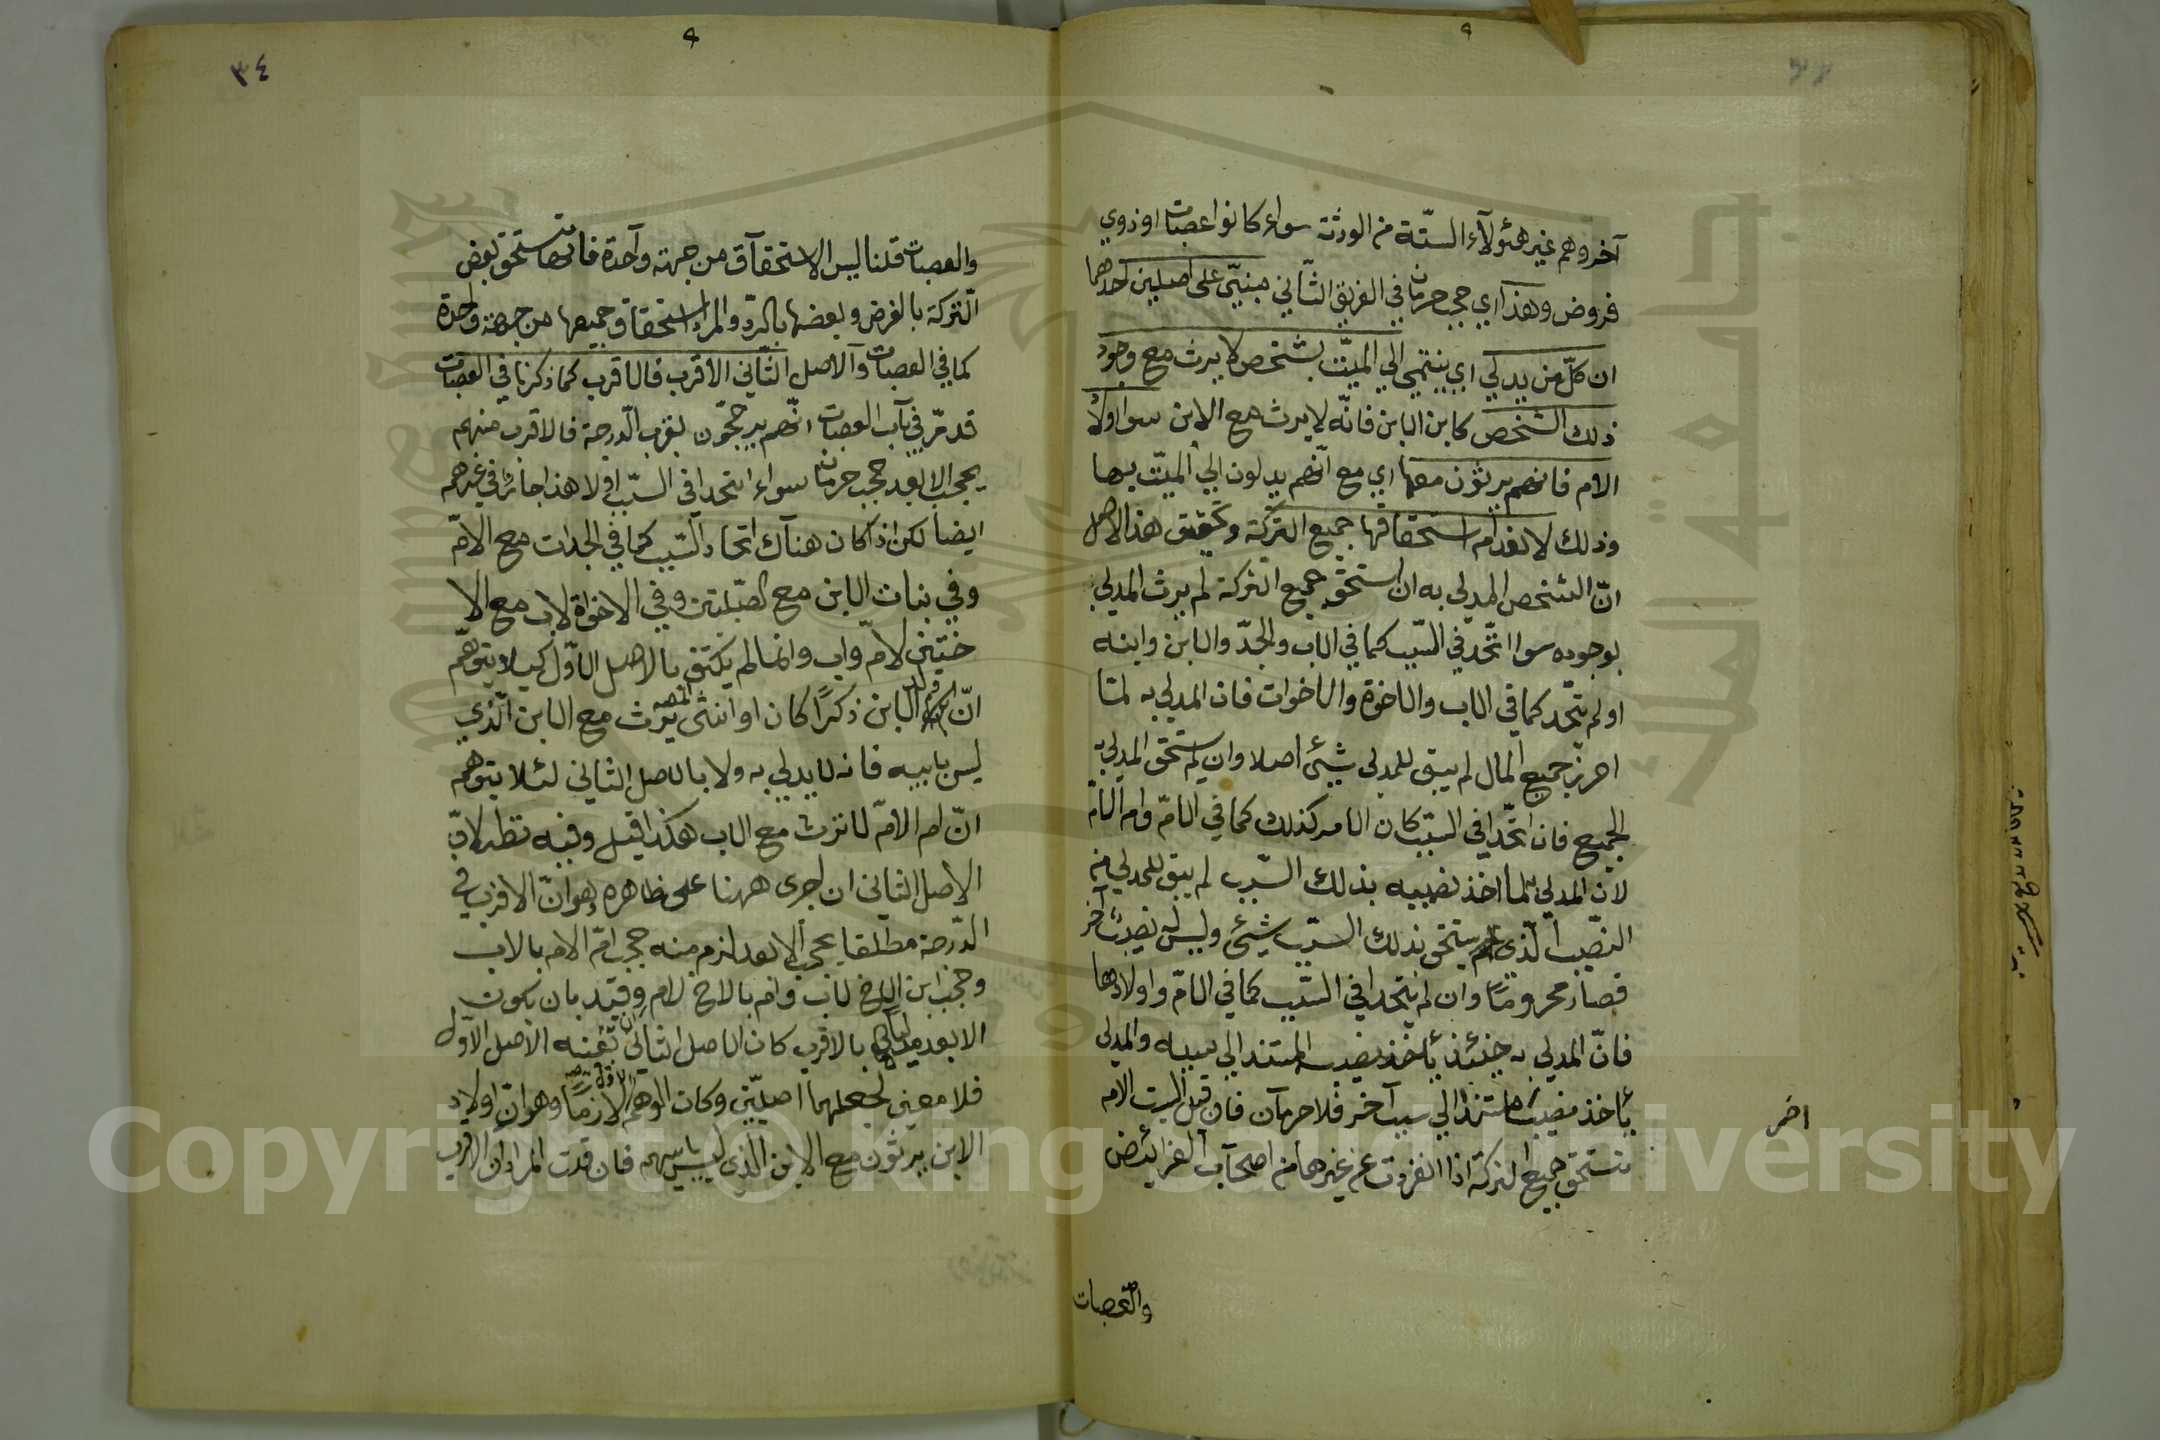 آخر وهم غير هئولآء الستّة من الورثة سواء كانوا عصبات او ذوي
فروض وهذا اي حجب حرمان في الفريق الثآني مبنيّ على اصلين احدهما
ان كلّ من يدلي اي ينتمي الي الميّت بشخص لا يرث مع وجود
ذلك الشخص كابن الابن فانّه لا يرث مع الابن سوا اولاد
الام فانهم يرثون معها اي مع انّهم يدلون الي الميّت بها
وذلك لانعدام استحقاقها جميع التركة وتحقيق هذا الاصل
انّ الشخص المدلي به ان استحق جميع التركة لم يرث المدلي
بوجوده سوا اتّحد في السّبب كما في الاب والجدّ والابن وابنه
او لم يتّحد كما في الاب والاخوة والاخوات فان المدلي به لمّا
احرز جميع المال لم يبق للمدلي شيئ اصلا وان لم يستحق المدلي به
الجميع فان اتّحدا في السّبب كان الامر كذلك كما في الامّ وام الامّ
لان المدلي به لما اخذ نصيبه بذلك السّبب لم يبق للمدلي من
النصّيب الّذي يستحق بذلك السّبب شيئ وليس له نصيب آخر
فصار محروما وان لم يتّحدا في السّبب كما في الامّ واولادها
فانّ المدلي به حينئذ يأخذ نصيبه المستند الي سببه والمدلي
يأخذ نصيبا مستندا الي سبب آخر فلا حرمآن فان قيل اليست الام
اخر
تستحق جميع التركة اذا انفردت عن غيرها من اصحآب الفرائض
والعصبات
٣٤
والعصبات قلنا ليس الاستحقآق من جهة وآحدة فانها تستحق بعض
التركة بالفرض وبعضها بالردّ والمراد استحقاق جميعها من جهة واحدة
كما في العصبات وآلاصل الثّاني الاقرب فالاقرب كما ذكرنا في العصبات
قد مرّ في بآب العصبات انّهم يرجّحون بقرب الدّرجة فالاقرب منهم
يحجب الابعد حجب حرمان سواء اتحدا في السّبب اولا هذا جائز في غيرهم
ايضا لكن اذا كان هنآك اتحاد السّبب كما في الجدات مع الامّ
وفي بنات الابن مع الصّلبيتين وفي الاخوة لاب مع الا
ختين لامّ واب وانما لم يكتف بالاصل الاوّل كيلا يتوهّم
انّ ولد الابن ذكرًا كان او انثى يرث مع الابن الّذي
ليس بابيه فانه لا يدلي به ولا بالاصل الثاني لئلا يتوهّم
انّ ام الامّ لا ترث مع الاب هكذا قيل وفيه نظر لانّ
الاصل الثاني ان اجرى ههنا على ظاهره وهو انّ الاقرب في
الدّرجة مطلقا يحجب الابعد لزم منه حجب امّ الام بالاب
وحجب ابن الاخ لاب وام بالاخ لام وقيد بان يكون
الابعد مدليا بالاقرب كان الاصل الثاني بعينه الاصل الاوّل
فلا معنى لجعلهما اصلين وكان الوهم الاول لازما وهو انّ اولاد
الابن يرثون مع الابن الذي ليس بابيهم فان قلت المراد ان الاقرب